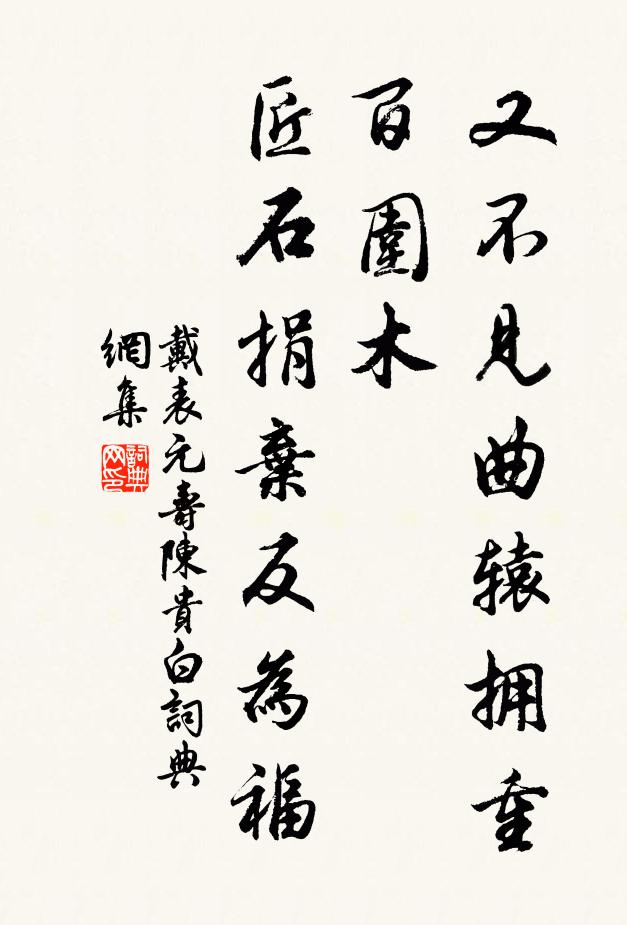 又不見曲辕拥重
百圍木
匠石捐棄反為福
戴表元壽陳貴白詞典
網集
詞典
网印